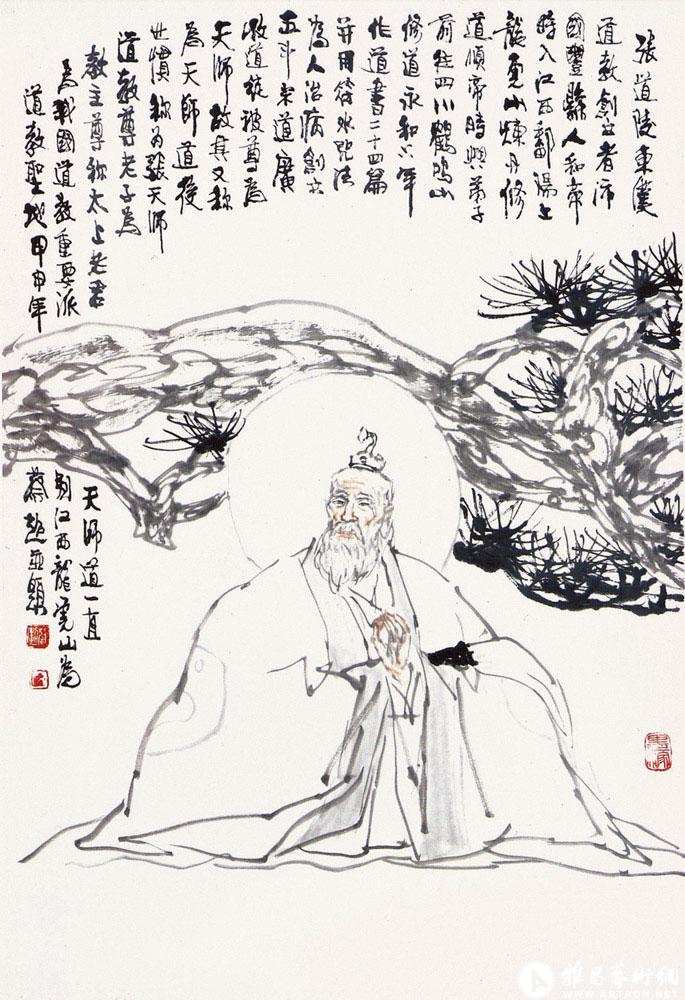 張道陵東漢
道教創立者沛
國豐縣人和帝
時入江西鄱湯上
龍虎山煉丹修
道順帝時與弟子
前往四川鶴鳴山
修道永和六年
作道書二十四篇
并用符水咒法
為人治病創立
五斗米道廣
收道徒被尊為
天師故其又稱
為天師道後
世慣称為張天師
道教尊老子為
教主尊称太上老君
為我國道教重要派
道教聖地甲申年
天師道一直
江西龍虎山為
雅昌藝術網
WWW.ARTRON.NET